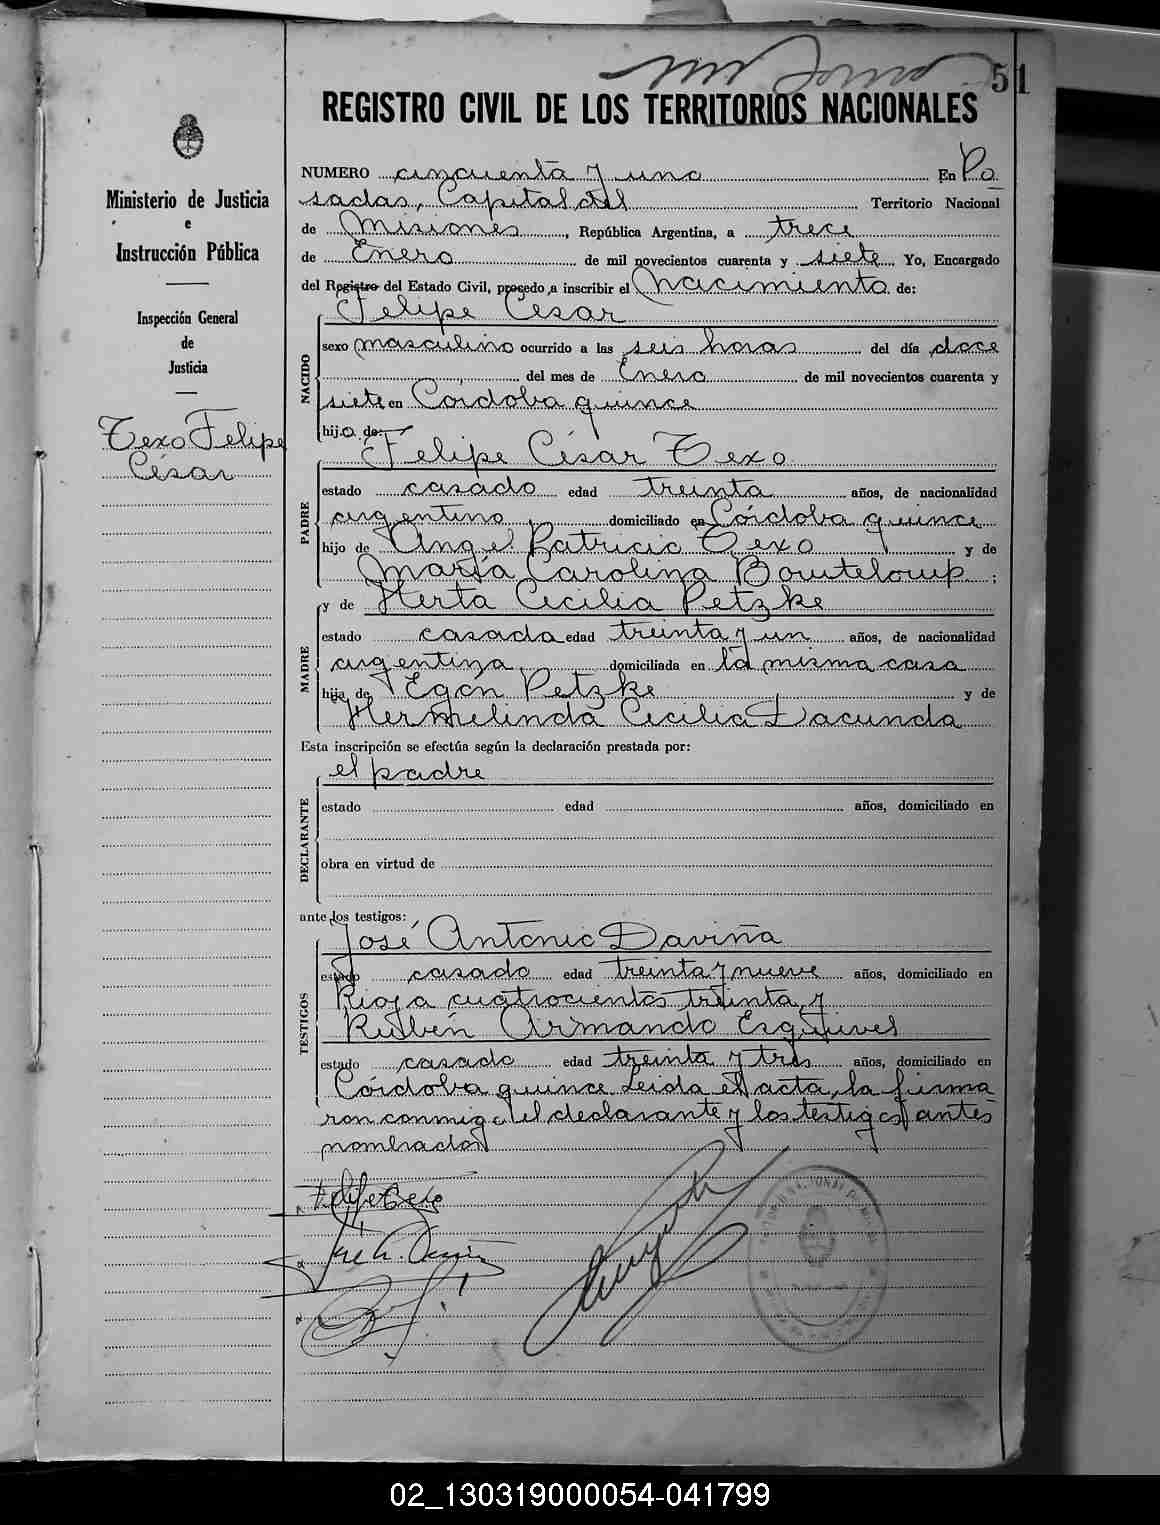 51
REGISTRO CIVIL DE LOS TERRITORIOS NACIONALES
Ministerio de Justicia
e
Instrucción Pública
Inspección General
de
Justicia
Texo Felipe
César
NUMERO cincuenta y uno En Po
sadas, Capital del Territorio Nacional
de Misiones, República Argentina, a trece
de Enero de mil novecientos cuarenta y siete Yo, Encargado
del Registro del Estado Civil, procedo a inscribir el Nacimiento de:
NACIDO
Felipe César
sexo masculino ocurrido a las seis horas del día doce
del mes de Enero de mil novecientos cuarenta y
siete en Córdoba quince
hijo de:
PADRE
Felipe César Texo
estado casado edad treinta años, de nacionalidad
argentino domiciliado en Córdoba quince
hijo de Angel Patricio Texo y de
María Carolina Bouteloup ;
MADRE
y de Herta Cecilia Petzke
estado casada edad treinta y un años, de nacionalidad
argentina, domiciliada en la misma casa
hija de Egón Petzke y de
Hermelinda Cecilia Dacunda
Esta inscripción se efectúa según la declaración prestada por:
DECLARANTE
el padre
estado edad años, domiciliado en
obra en virtud de
ante los testigos:
TESTIGOS
José Antonio Daviña
estado casado edad treinta y nueve años, domiciliado en
Rioja cuatrocientos treinta y
Rubén Armando Esquivel
estado casado edad treinta y tres años, domiciliado en
Córdoba quince Leida el acta, la firma
ron conmigo el declarante y los testigos antes
nombrados
02_130319000054-041799